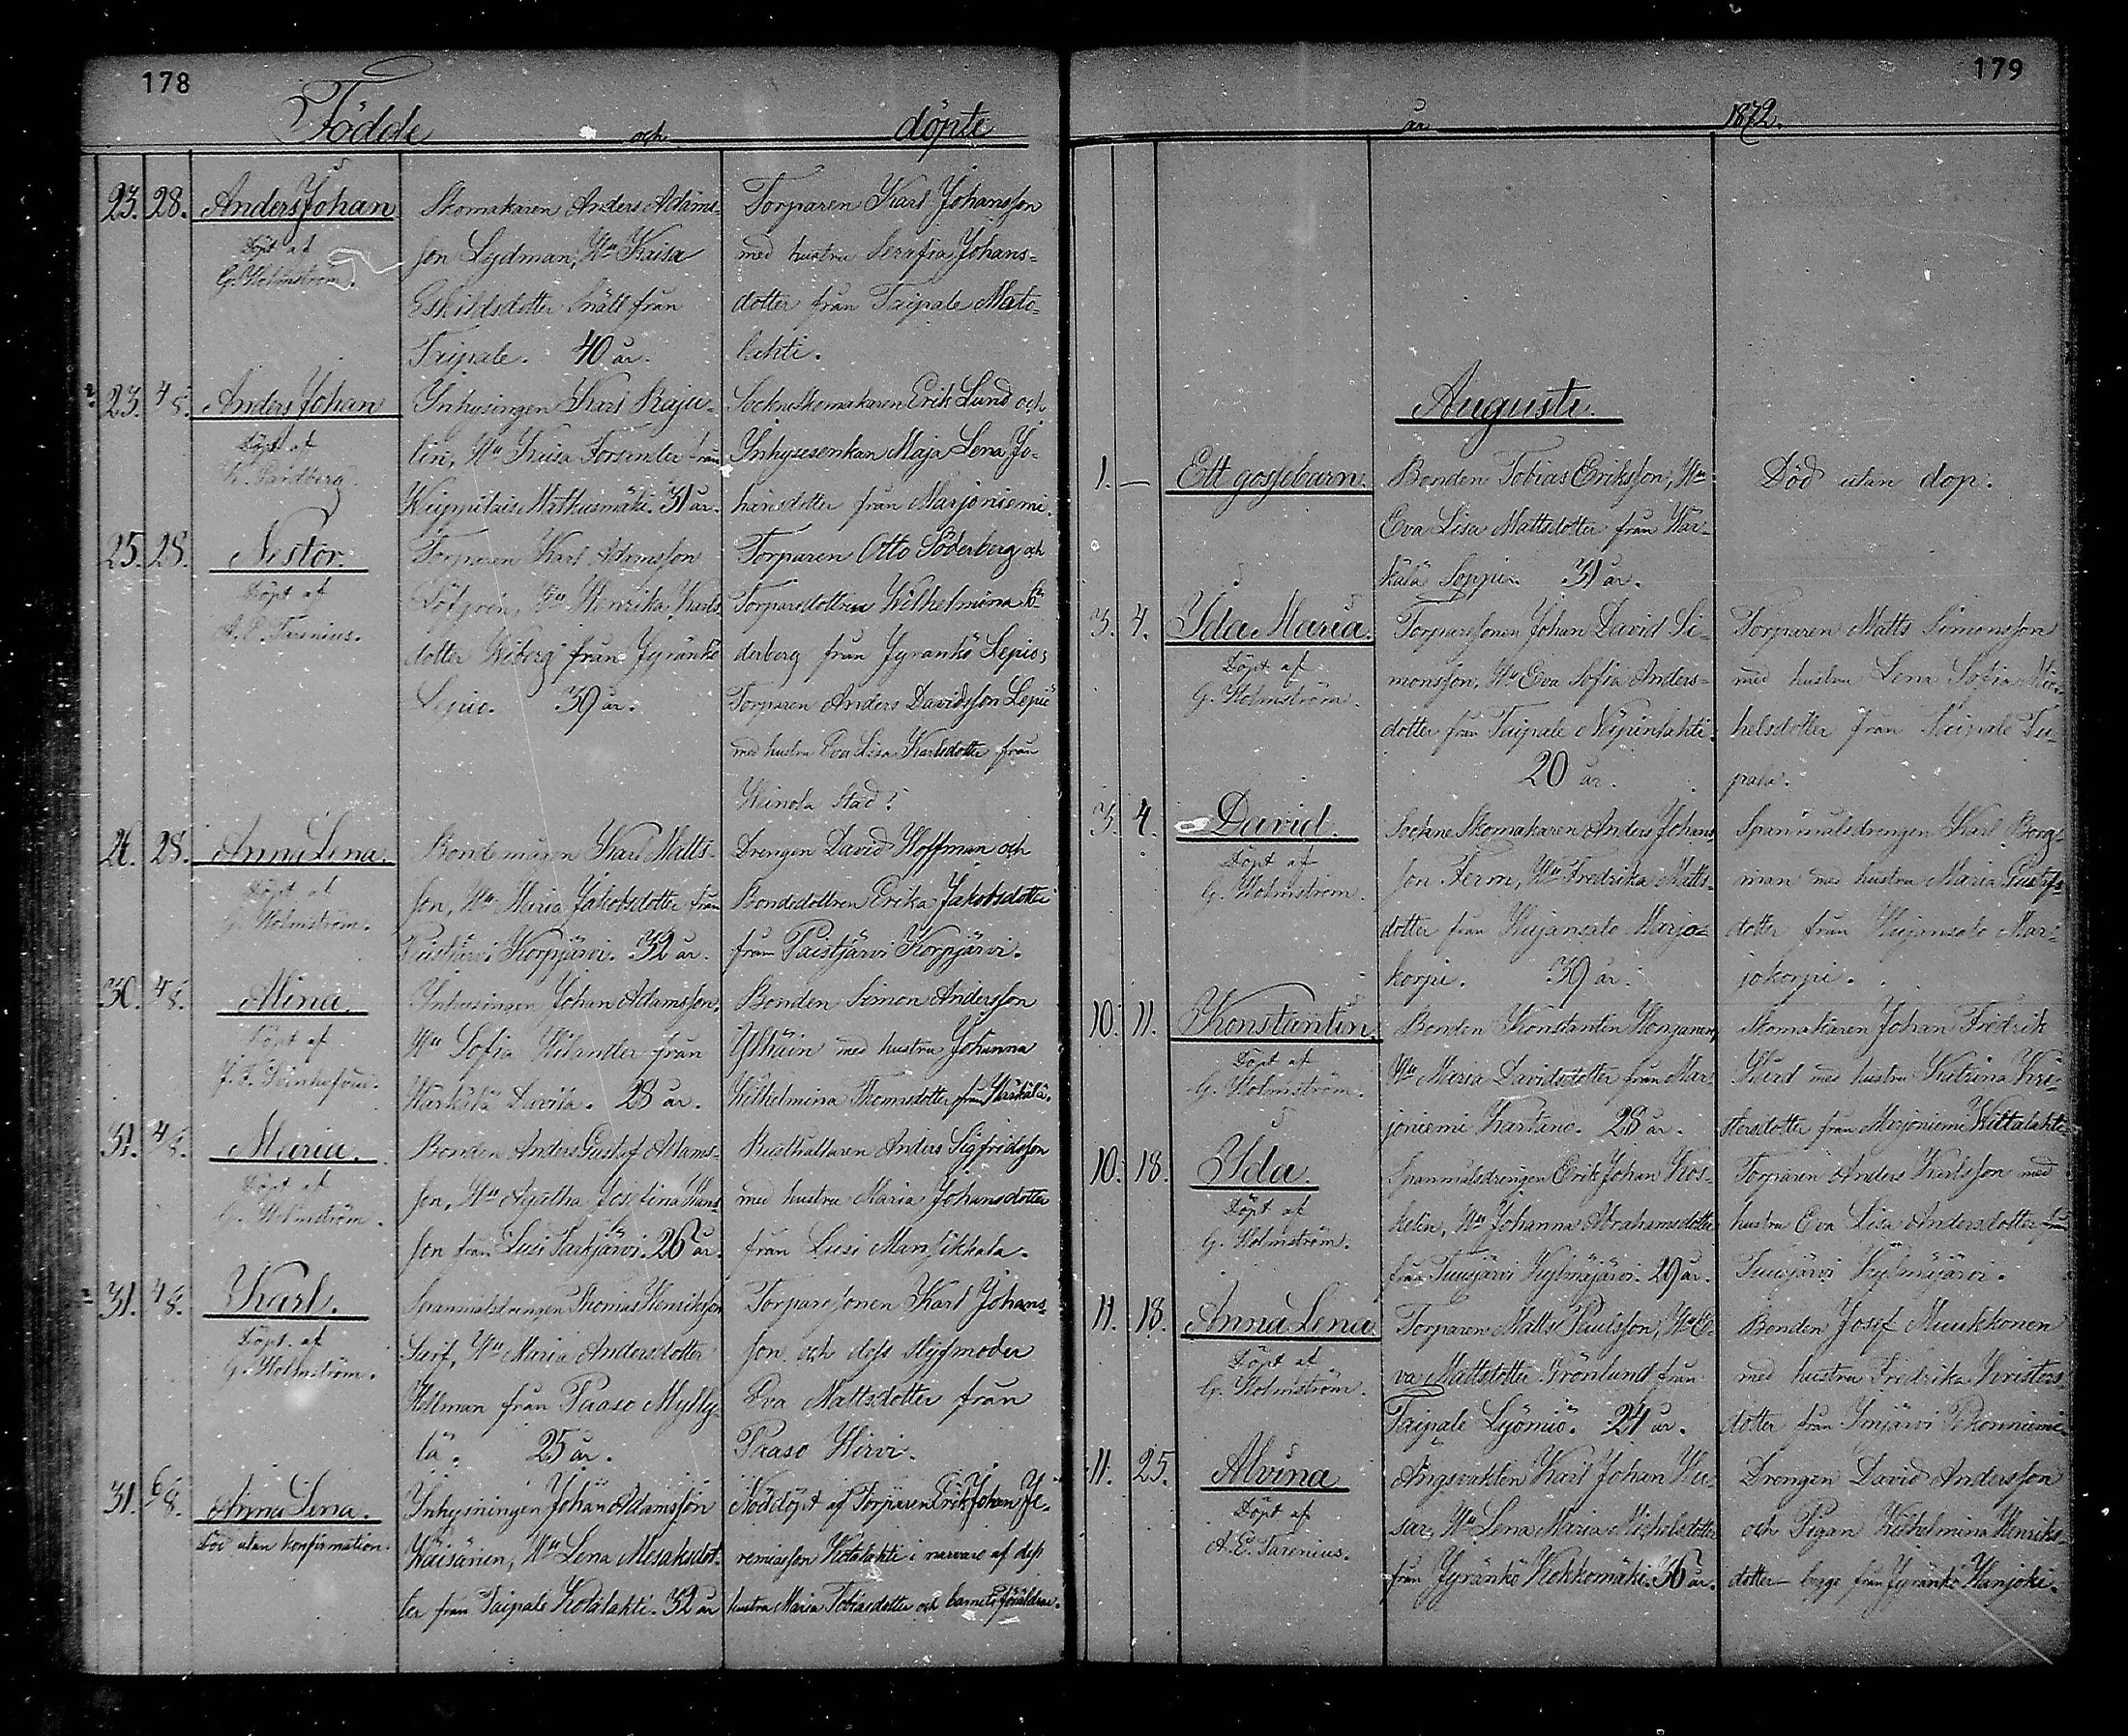 178
Födde och döpte
23. 28. Anders Johan
Döpt af
G. Holmström.
Skomakaren Anders Adams-
son Lydman, Hu Kaisa
Eskildsdotter Snäll från
Taipale. 40 år.
Torparen Karl Johansson
med hustru Serafia Johans-
dotter från Taipale Mato-
lahti.
23. 4/8. Anders Johan
Döpt af
K. Sandberg.
Inhysingen Karl Raju-
lin, Hu Kaisa Forsender från
Matkusmäki. 31 år.
Sockneskomakaren Erik Lund och
Inhysesenkan Maja Lena Jo-
hansdotter från Marjoniemi.
25. 28. Nestor.
Döpt af
A. E. Tarenius.
Torparen Karl Adamsson
Löfgren, Hu Henrika Karls
dotter Wiberg från Jyränkö
Lepio. 39 år.
Torparen Otto Söderberg och
Torparedottren Wilhelmina Sö-
derberg från Jyränkö Lepio;
Torparen Anders Davidsson Lepiö
med hustru Eva Lisa Karlsdotter från
Heinola Stad?
26. 28. Anna Lena.
Döpt af
G. Holmström.
Bondemågen Karl Matts-
son, Hu Maria Jakobsdotter från
Paistjärvi Korpjärvi. 32 år.
Drengen David Hoffman och
Bondedottren Erika Jakobsdotter
från Paistjärvi Korpjärvi.
30. 4/8. Mina.
Döpt af
Inhusingen Johan Adamsson,
Hu Sofia Wilander från
Härkälä Lavila. 28 år.
Bonden Simon Andersson
med hustru Johanna
Wilhelmina Thomsdotter från Härkälä.
31. 4/8. Maria.
Döpt af
G. Holmström.
Bonden Anders Gustaf Adams-
son, Hu Agatha Josefina Hans
son från Lusi Sarkjärvi. 26 år.
Rusthållaren Anders Sigfridsson
med hustru Maria Johansdotter
från Lusi Mansikkala.
31. 4/8. Karl.
Döpt af
G. Holmström.
Spanmålsdrengen Thomas Henriksson
Hu Maria Andersdotter
Hellman från Paaso Mylly-
lä. 25 år.
Torparesonen Karl Johans-
son och dess styfmoder
Eva Mattsdotter från
Paaso Hirvi.
31. 6/8. Anna Lena.
Död utan konfirmation.
Inhysningen Johan Adamsson
Wäisänen, Hu Lena Mesaksdot-
ter från Taipale Kotalahti. 32 år
Nöddöpt af Torparen Erik Johan Je-
remiasson Kotalahti i närvaro af dess
hustru Maria Tobiasdotter och barnets föräldrar.
179
år 1872.
Augusti.
1. — Ett gossebarn.
Bonden Tobias Eriksson, Hu
Eva Lisa Mattsdotter från Här-
kälä Seppä. 31 år.
Död utan dop.
3. 4. Ida Maria.
Döpt af
G. Holmström.
Torparesonen Johan David Si-
monsson, Hu Eva Sofia Anders-
dotter från Taipale
20 år.
Torparen Matts Simonsson
med hustru Lena Sofia Mic-
helsdotter från Taipale Tu-
pala.
3. 4. David.
Döpt af
G. Holmström.
Sockne Skomakaren Anders Johans
son Ferm, Hu Fredrika Matts-
dotter från Hujansalo Marjo-
korpi. 39 år.
Spanmålsdrengen Karl Borg-
man med hustru Maria Gustafs-
dotter från Hujansalo Mar-
jokorpi.
10. 11. Konstantin.
Döpt af
G. Holmström.
Bonden Konstantin Honganen,
Hu Maria Davidsdotter från Mar-
joniemi Kartano. 28 år.
Skomakaren Johan Fredrik
Hård med hustru Katrina Kri-
stersdotter från Marjoniemi Wittalahti
10. 18. Ida.
Döpt af
G. Holmström.
Spanmålsdrengen Erik Johan Kos-
kelin, Hu Johanna Abrahamsdotter
från Tuusjärvi Kylmäjärvi. 29 år.
Torparen Anders Karlsson med
hustru Eva Lisa Andersdotter från
Tuusjärvi Kylmäjärvi.
11. 18. Anna Lena
Döpt af
G. Holmström.
Torparen Matts Paulsson, Hu E-
va Mattsdotter Grönlund från
Taipale Lyömiö. 24 år.
Bonden Josef Muukkonen
med hustru Fredrika Kristers-
dotter från Imjärvi Pekonniemi
11. 25. Alvina
Döpt af
A. E. Tarenius.
Ångsvakten Karl Johan Hu-
sar, Hu Lena Maria Michelsdotter
från Jyränkö Kokkomäki. 36 år.
Drengen David Andersson
och Pigan Wilhelmina Henriks-
dotter begge från Jyränkö Hanjoki.